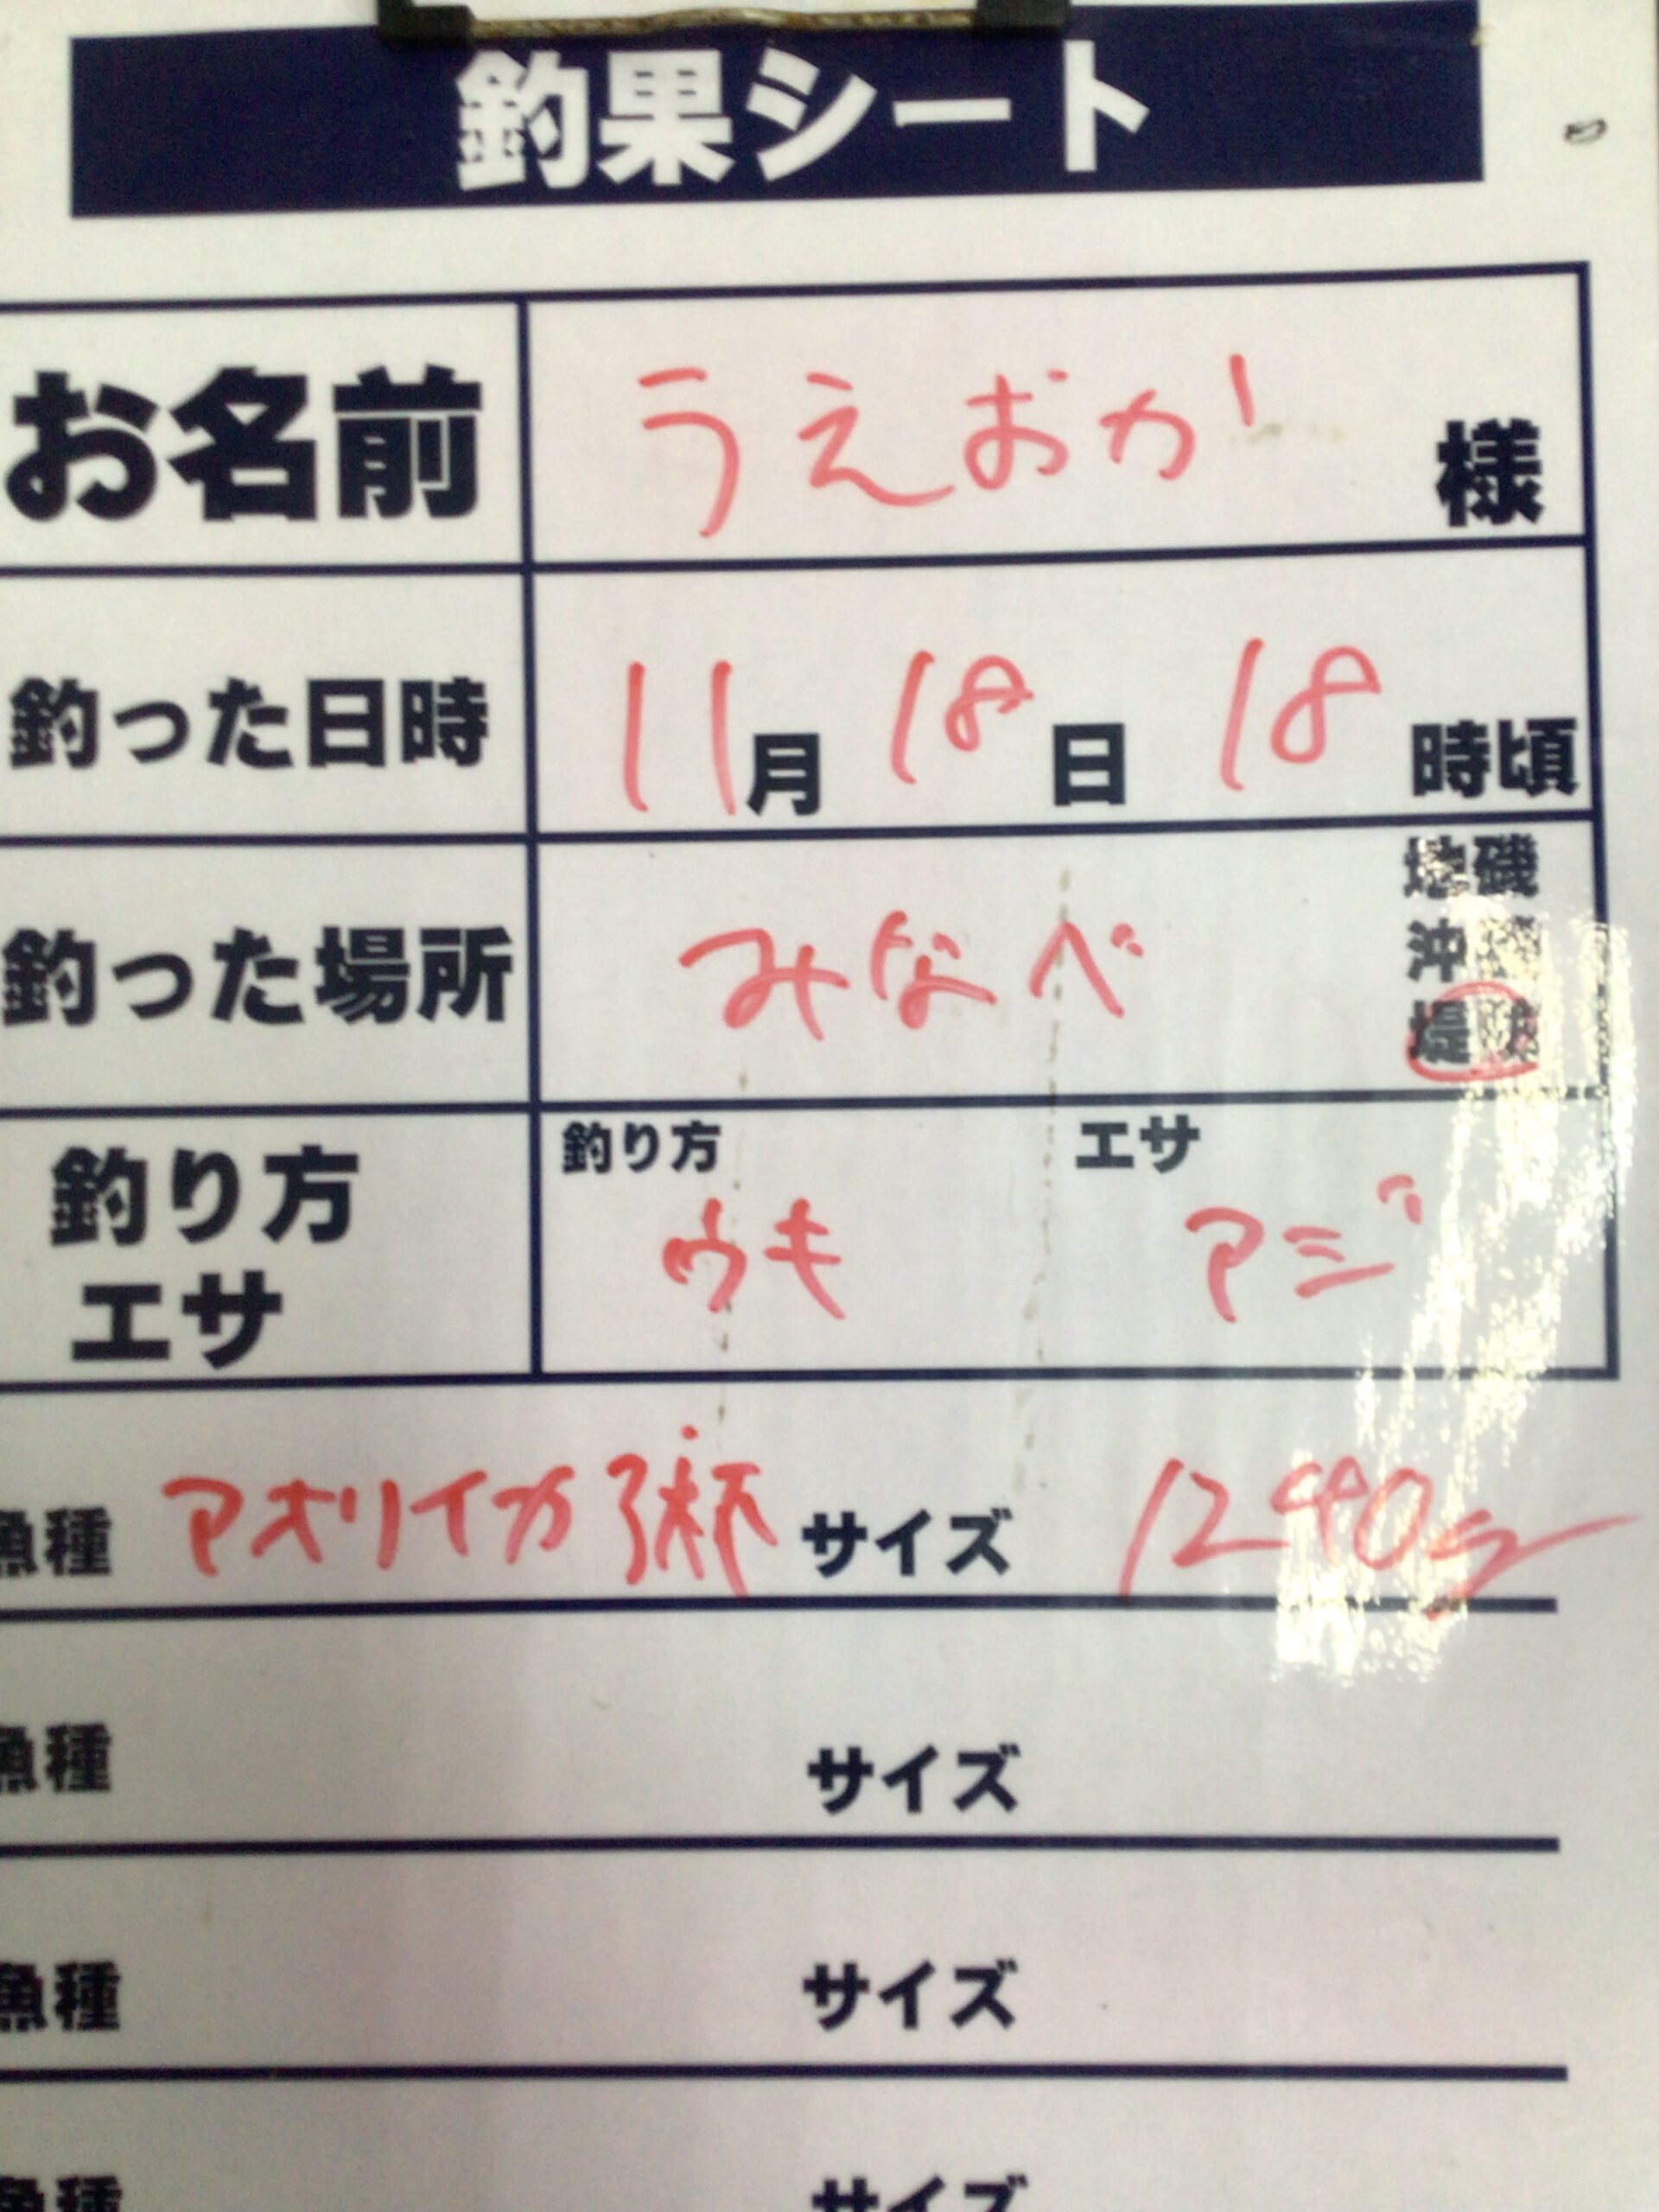 釣果シート
お名前 うえおか 様
釣った日時 11月 18日 18時頃
釣った場所 みなべ 地磯
沖磯
堤防
釣り方 エサ
釣り方 ウキ エサ アジ
魚種 アオリイカ 3杯 サイズ 1240g
魚種 サイズ
魚種 サイズ
魚種 サイズ